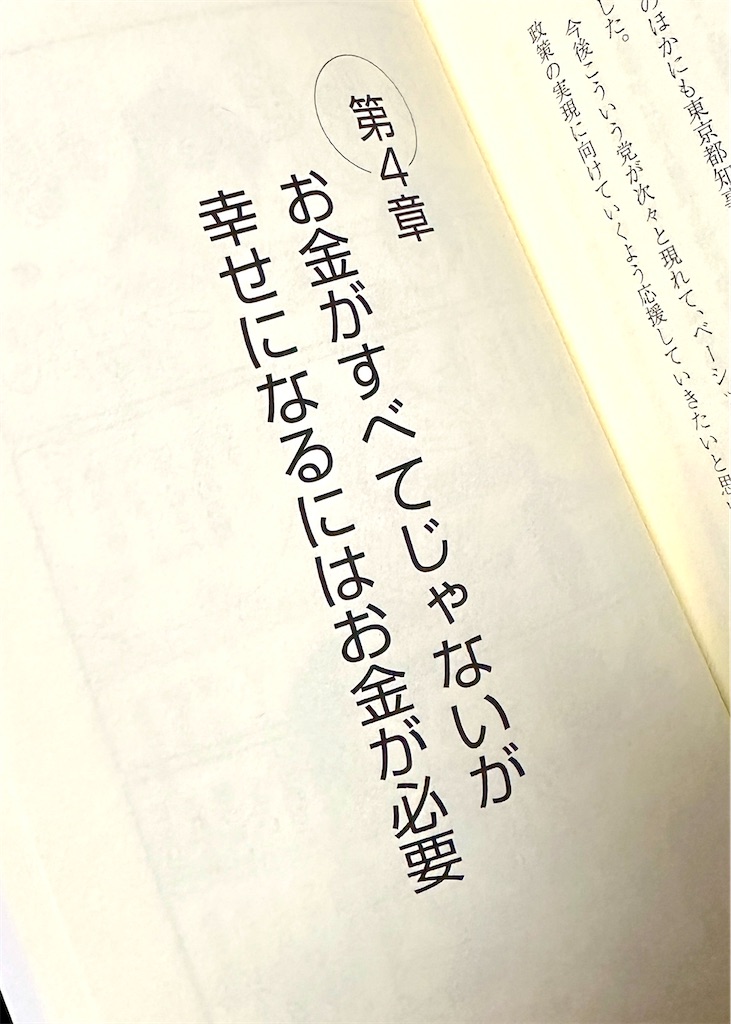 のほかにも東京都知事
した。
今後こういう党が次々と現れて、ベーシ
政策の実現に向けていくよう応援していきたいと思い
第4章
お金がすべてじゃないが
幸せになるにはお金が必要